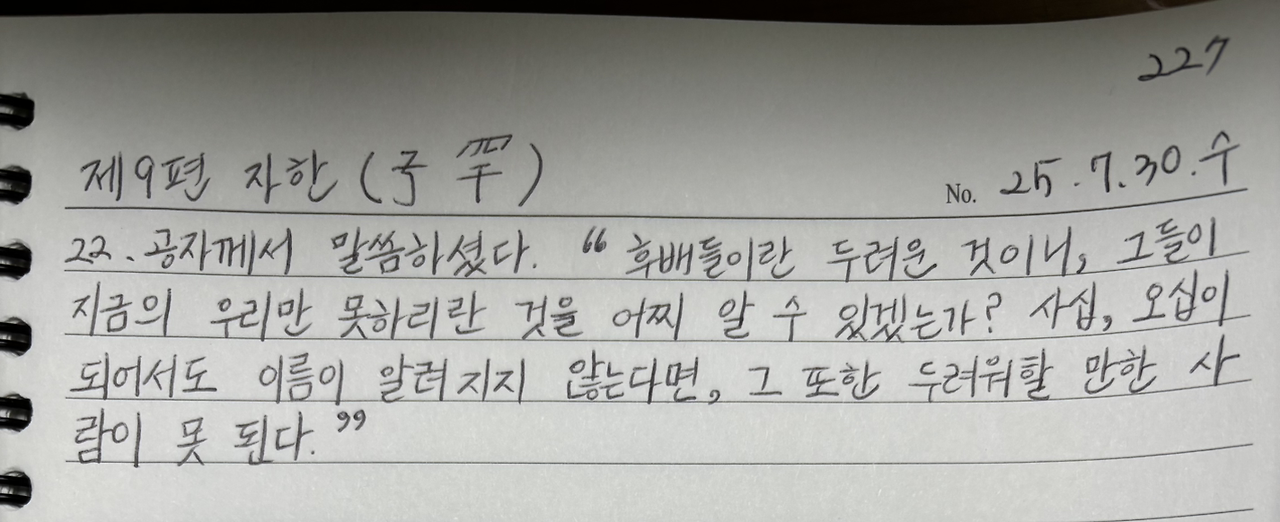 227
제9편 자한 (子罕)
No. 25.7.30.수
22. 공자께서 말씀하셨다. “후배들이란 두려운 것이니, 그들이
지금의 우리만 못하리란 것을 어찌 알 수 있겠는가? 사십, 오십이
되어서도 이름이 알려지지 않는다면, 그 또한 두려워할 만한 사
람이 못 된다.”